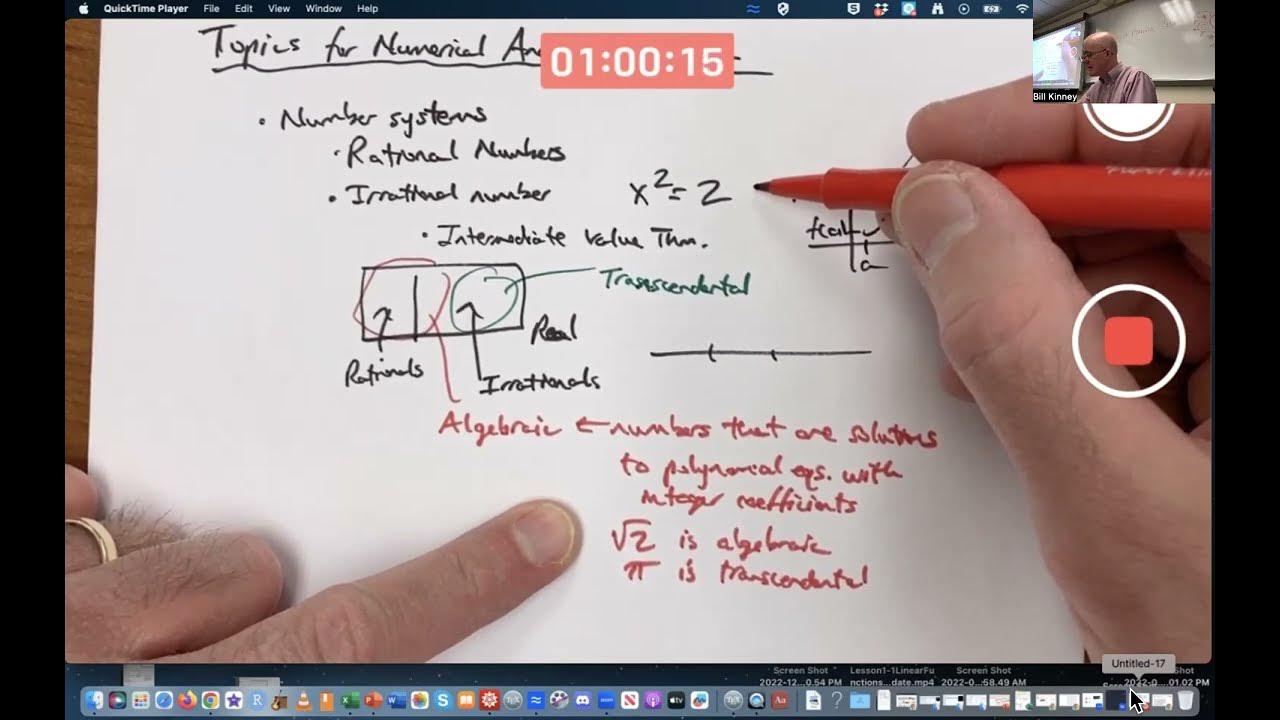 QuickTime Player File Edit View Window Help
Topics for Numerical
01:00:15
Bill Kinney
• Number systems
• Rational Numbers
• Irrational number
x² = 2
• Intermediate Value Thm.
f(a)
a
Transcendental
Real
Rationals
Irrationals
Algebraic ← numbers that are solutions
to polynomial eqs. with
integer coefficients
√2 is algebraic
π is transcendental
Untitled-17
Screen Shot Lesson1-1LinearFu Screen Shot Shot
2022-12...0.54 PM nctions...date.mp4 2022-0...58.49 AM 2022-0...01.02 PM